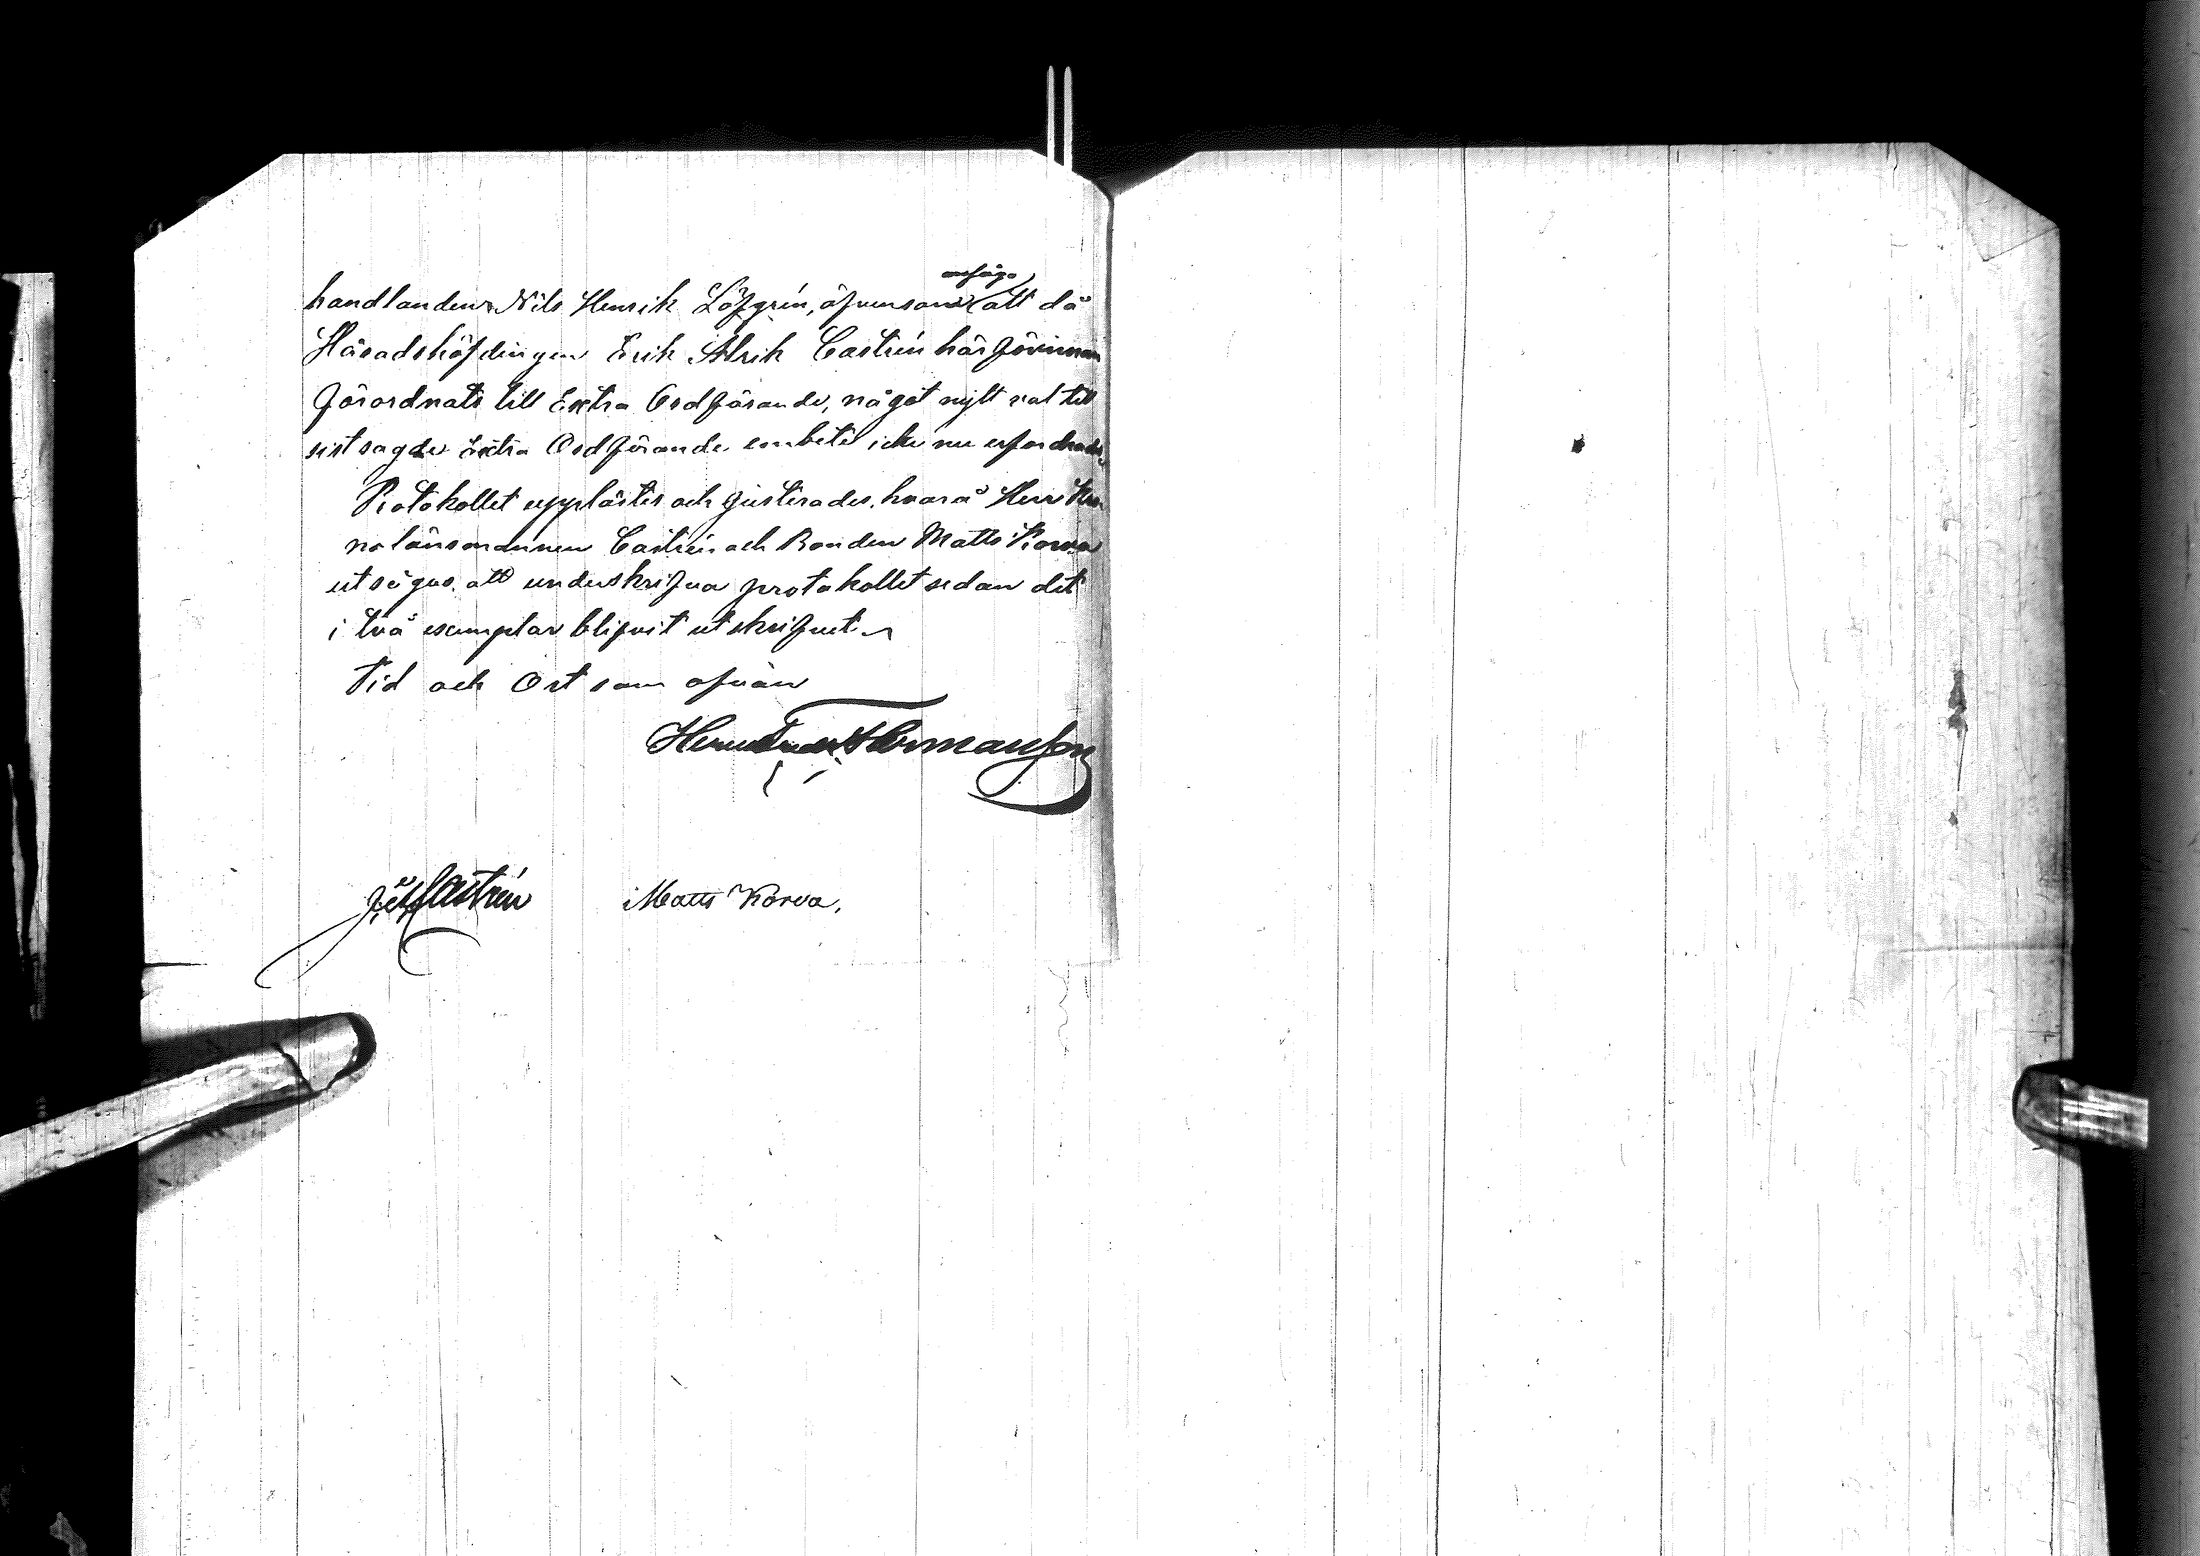 ansågs
handlanden Nils Henrik Löfgrén, äfvensom att då
Häradshöfdingen Erik Alrik Castrén härförinnan
förordnats till Extra Ordförande, något nytt val till
sistsagde Extra Ordförande embete icke nu erfordrades.
Protokollet upplästes och justerades, hvarå Herr Kro
nolänsmannen Castrén och Bonden Matts Korva
utsågos att underskrifva protokollet sedan det
i två exemplar blifvit utskrifvet.
Tid och Ort som ofvan
Hermanson
Castrén Matts Korva,